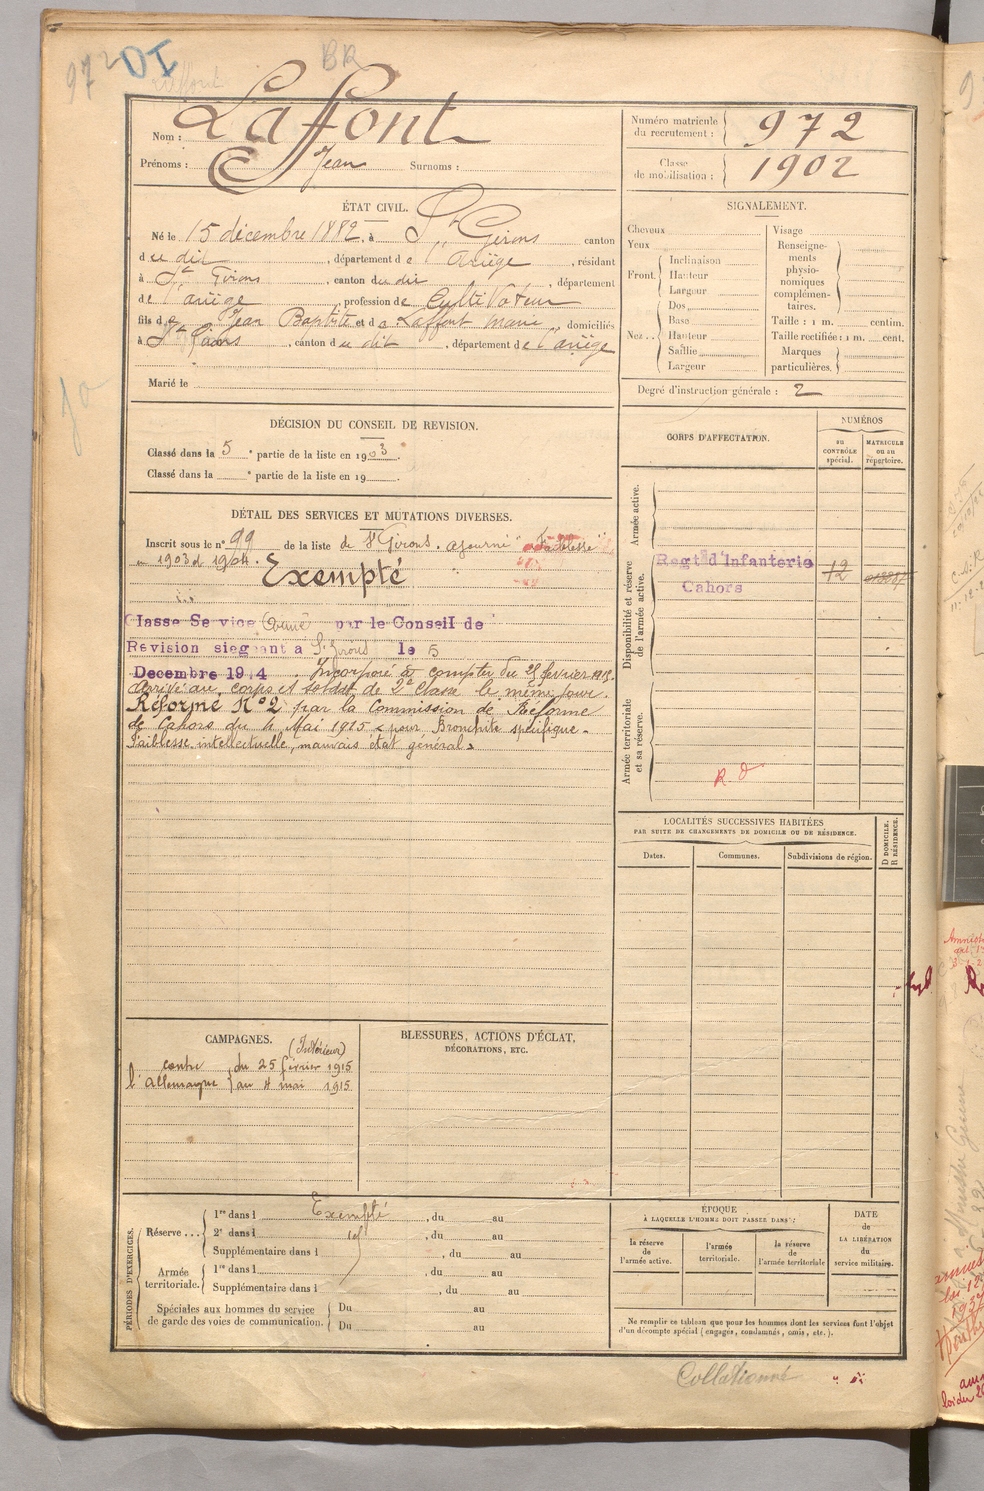 972
DI
BR
Laffont
Nom : Laffont
Prénoms : Jean Surnoms :
Numéro matricule du recrutement : 972
Classe de mobilisation : 1902
ÉTAT CIVIL.
Né le 15 décembre 1882, à St Girons canton
du dit, département de l'Ariège, résidant
à St Girons, canton du dit, département
de l'ariège, profession de Cultivateur
fils de Jean Baptiste et de Laffont Marie, domiciliés
à St Girons, canton du dit, département de l'ariège
Marié le
SIGNALEMENT.
Cheveux
Yeux
Front. Inclinaison
Hauteur
Largeur
Nez .. Dos
Base
Hauteur
Saillie
Largeur
Visage
Renseigne-
ments
physio-
nomiques
complémen-
taires.
Taille : 1 m. centim.
Taille rectifiée : 1 m. cent.
Marques
particulières.
Degré d'instruction générale : 2
DÉCISION DU CONSEIL DE REVISION.
Classé dans la 5e partie de la liste en 1903.
Classé dans la e partie de la liste en 19 .
DÉTAIL DES SERVICES ET MUTATIONS DIVERSES.
Inscrit sous le n° 99 de la liste de St Girons. ajourné "Faiblesse"
en 1903 et 1904.
Exempté
Classe Service Armé par le Conseil de
Révision siegeant à St Girons le 5
Decembre 1914. Incorporé à compter du 25 février 1915.
Arrivé au corps et soldat de 2e Classe le même jour.
Réformé N°2 par la Commission de Réforme
de Cahors du 4 Mai 1915 « pour Bronchite spécifique -
Faiblesse intellectuelle, mauvais état général »
CORPS D'AFFECTATION.
NUMÉROS
au CONTRÔLE spécial.
MATRICULE ou au répertoire.
Armée active.
Disponibilité et réserve de l'armée active.
Regt d'Infanterie 12
Cahors
Armée territoriale et sa réserve.
R. D
LOCALITÉS SUCCESSIVES HABITÉES
PAR SUITE DE CHANGEMENTS DE DOMICILE OU DE RÉSIDENCE.
Dates.
Communes.
Subdivisions de région.
D DOMICILE.
R RÉSIDENCE.
CAMPAGNES.
(Intérieur)
contre du 25 février 1915
l'allemagne au 4 mai 1915
BLESSURES, ACTIONS D'ÉCLAT,
DÉCORATIONS, ETC.
PÉRIODES D'EXERCICES.
Réserve ... 1re dans l Exempté, du au
2e dans l id, du au
Supplémentaire dans l , du au
Armée territoriale. 1re dans l , du au
Supplémentaire dans l , du au
Spéciales aux hommes du service
de garde des voies de communication.
Du au
Du au
ÉPOQUE
À LAQUELLE L'HOMME DOIT PASSER DANS :
la réserve de l'armée active.
l'armée territoriale.
la réserve de l'armée territoriale
DATE
de
LA LIBÉRATION
du
service militaire.
Ne remplir ce tableau que pour les hommes dont les services font l'objet
d'un décompte spécial (engagés, condamnés, omis, etc.).
Collationné